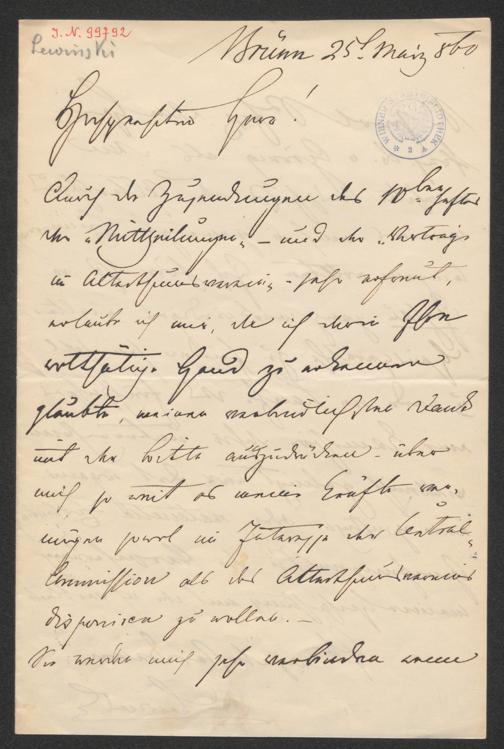 I.N. 99792
Lewinski
WIENER STADTBIBLIOTHEK
Brünn 25t März 860
Hochgeehrter Herr!
Durch die Zusendungen des 10ten Heftes
der „Mittheilungen" – und der „Vorträge
im Alterthumsverein" – sehr erfreut,
erlaube ich mir, da ich darin Ihre
wohlthätige Hand zu erkennen
glaubte, meinen verbindlichsten Dank
mit der Bitte auszudrücken – über
mich so weit es meine Kräfte ver-
mögen sowol im Interesse der Central-
Commission als des Alterthumsvereins
disponiren zu wollen. –
Sie werden mich sehr verbinden wenn